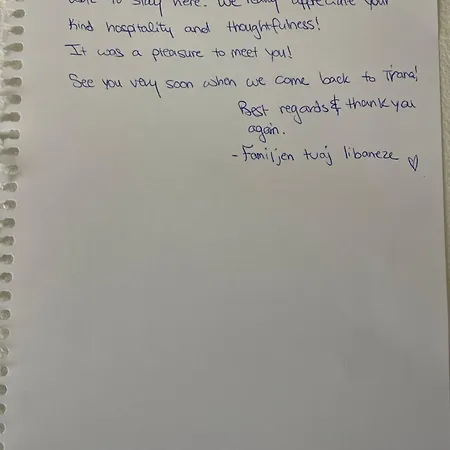 able to stay here. We really appreciate your
kind hospitality and thoughtfulness!
It was a pleasure to meet you!
See you very soon when we come back to Tirana!
Best regards & thank you
again.
- Familjen tuaj libaneze ♡